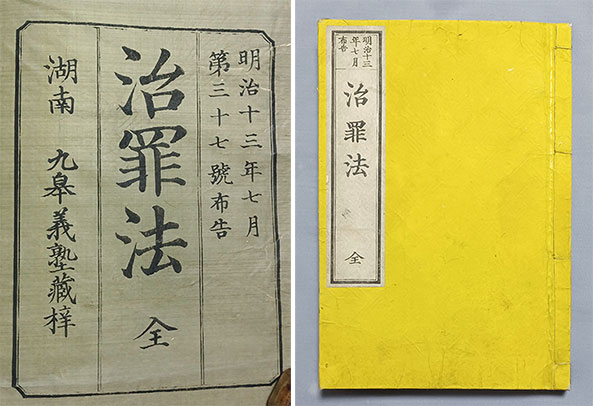 明治十三年七月
第三十七號布告
治罪法 全
湖南 九皋義塾藏梓
明治十三
年七月
布告
治罪法 全